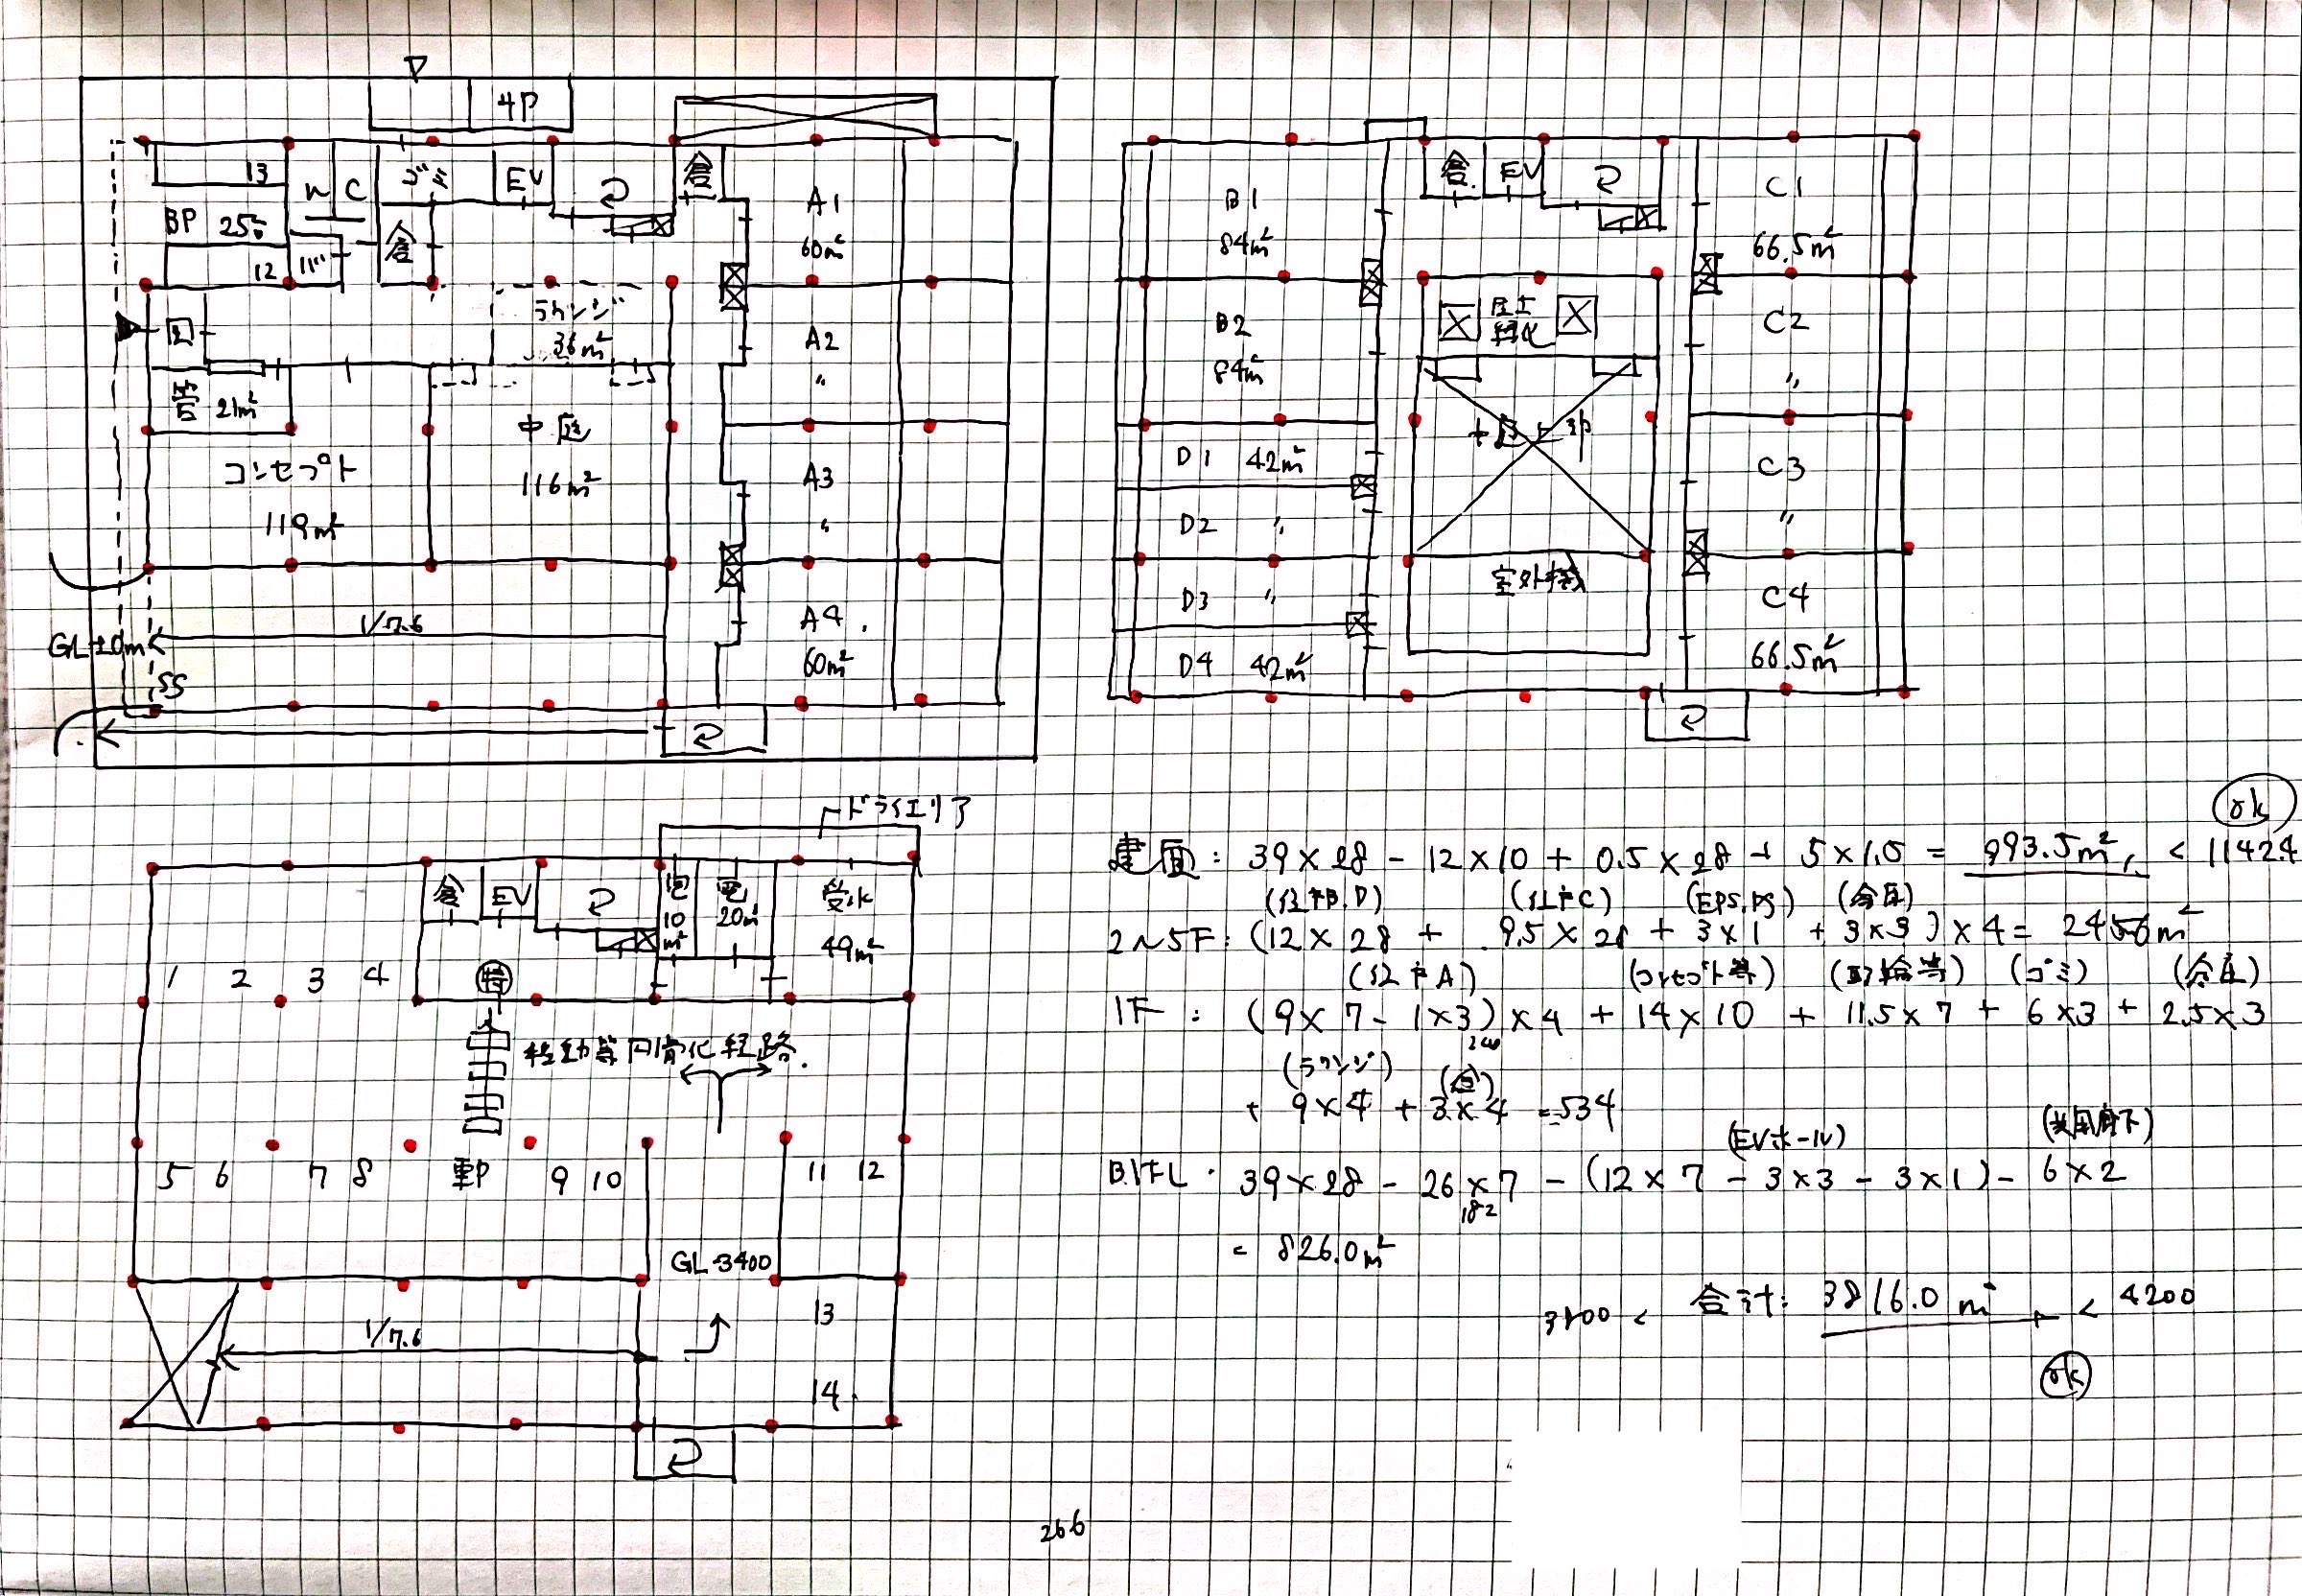 4P
13
W C
ゴミ
EV
倉
A1
60㎡
BP 25台
12
倉
ラウンジ
36㎡
A2
〃
管 21㎡
コンセプト
119㎡
中庭
116㎡
A3
〃
1/7.6
GL±0m
SS
A4
60㎡
B1
84㎡
倉
EV
C1
66.5㎡
B2
84㎡
屋上
緑化
C2
〃
D1 42㎡
D2 〃
C3
〃
D3 〃
室外機
C4
66.5㎡
D4 42㎡
ドライエリア
倉
EV
10㎡
電
20㎡
受水
49㎡
1 2 3 4
特
移動等円滑化経路
5 6 7 8 9 10 11 12
GL-3400
1/7.6
13
14
ok
建面: 39×28 - 12×10 + 0.5×28 + 5×1.5 = 993.5㎡, < 1142.4
(住戸B.D) (住戸C) (EPS.PS) (倉庫)
2~5F: (12×28 + 9.5×28 + 3×1 + 3×3)×4 = 2456㎡
(住戸A) (コンセプト等) (ゴミ) (倉庫)
1F: (9×7 - 1×3)×4 + 14×10 + 11.5×7 + 6×3 + 2.5×3
240
(ラウンジ)
+ 9×4 + 3×4 = 534
(EVホール)
B1FL: 39×28 - 26×7 - (12×7 - 3×3 - 3×1) - 6×2
182
= 826.0㎡
合計: 3816.0㎡ < 4200
ok
266